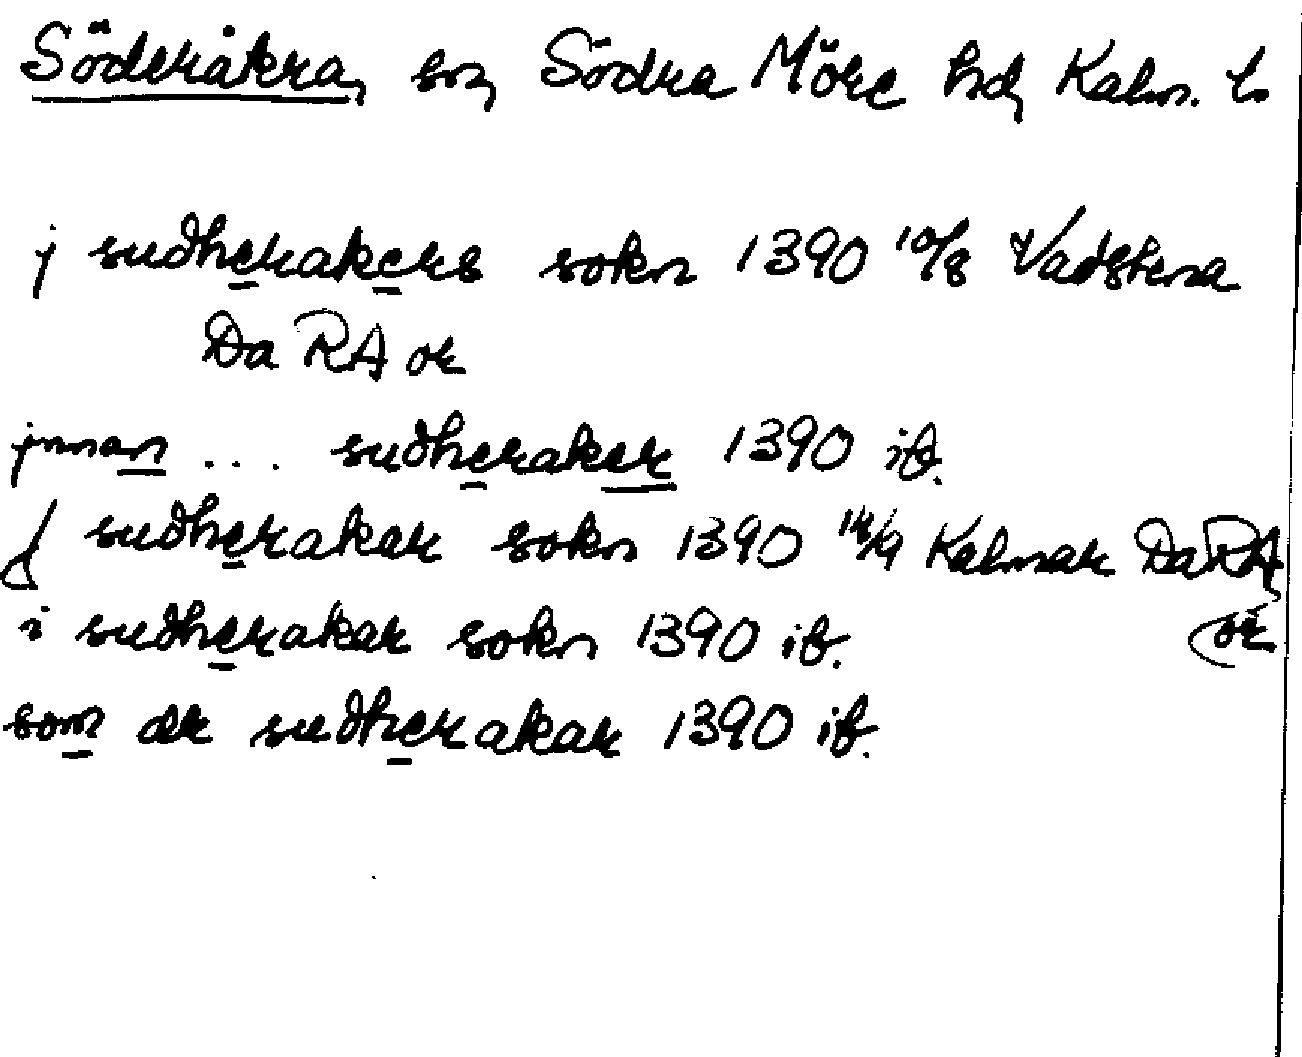 Söderåkra, sn, Södra Möre hd, Kalm. l.
j sudherakers sokn 1390 10/8 Vadstena
Da RA or
jnnan ... sudheraker 1390 ib.
J sudherakar sokn 1390 14/9 Kalmar Da RA
i sudherakar sokn 1390 ib. (or
som ær sudherakar 1390 ib.